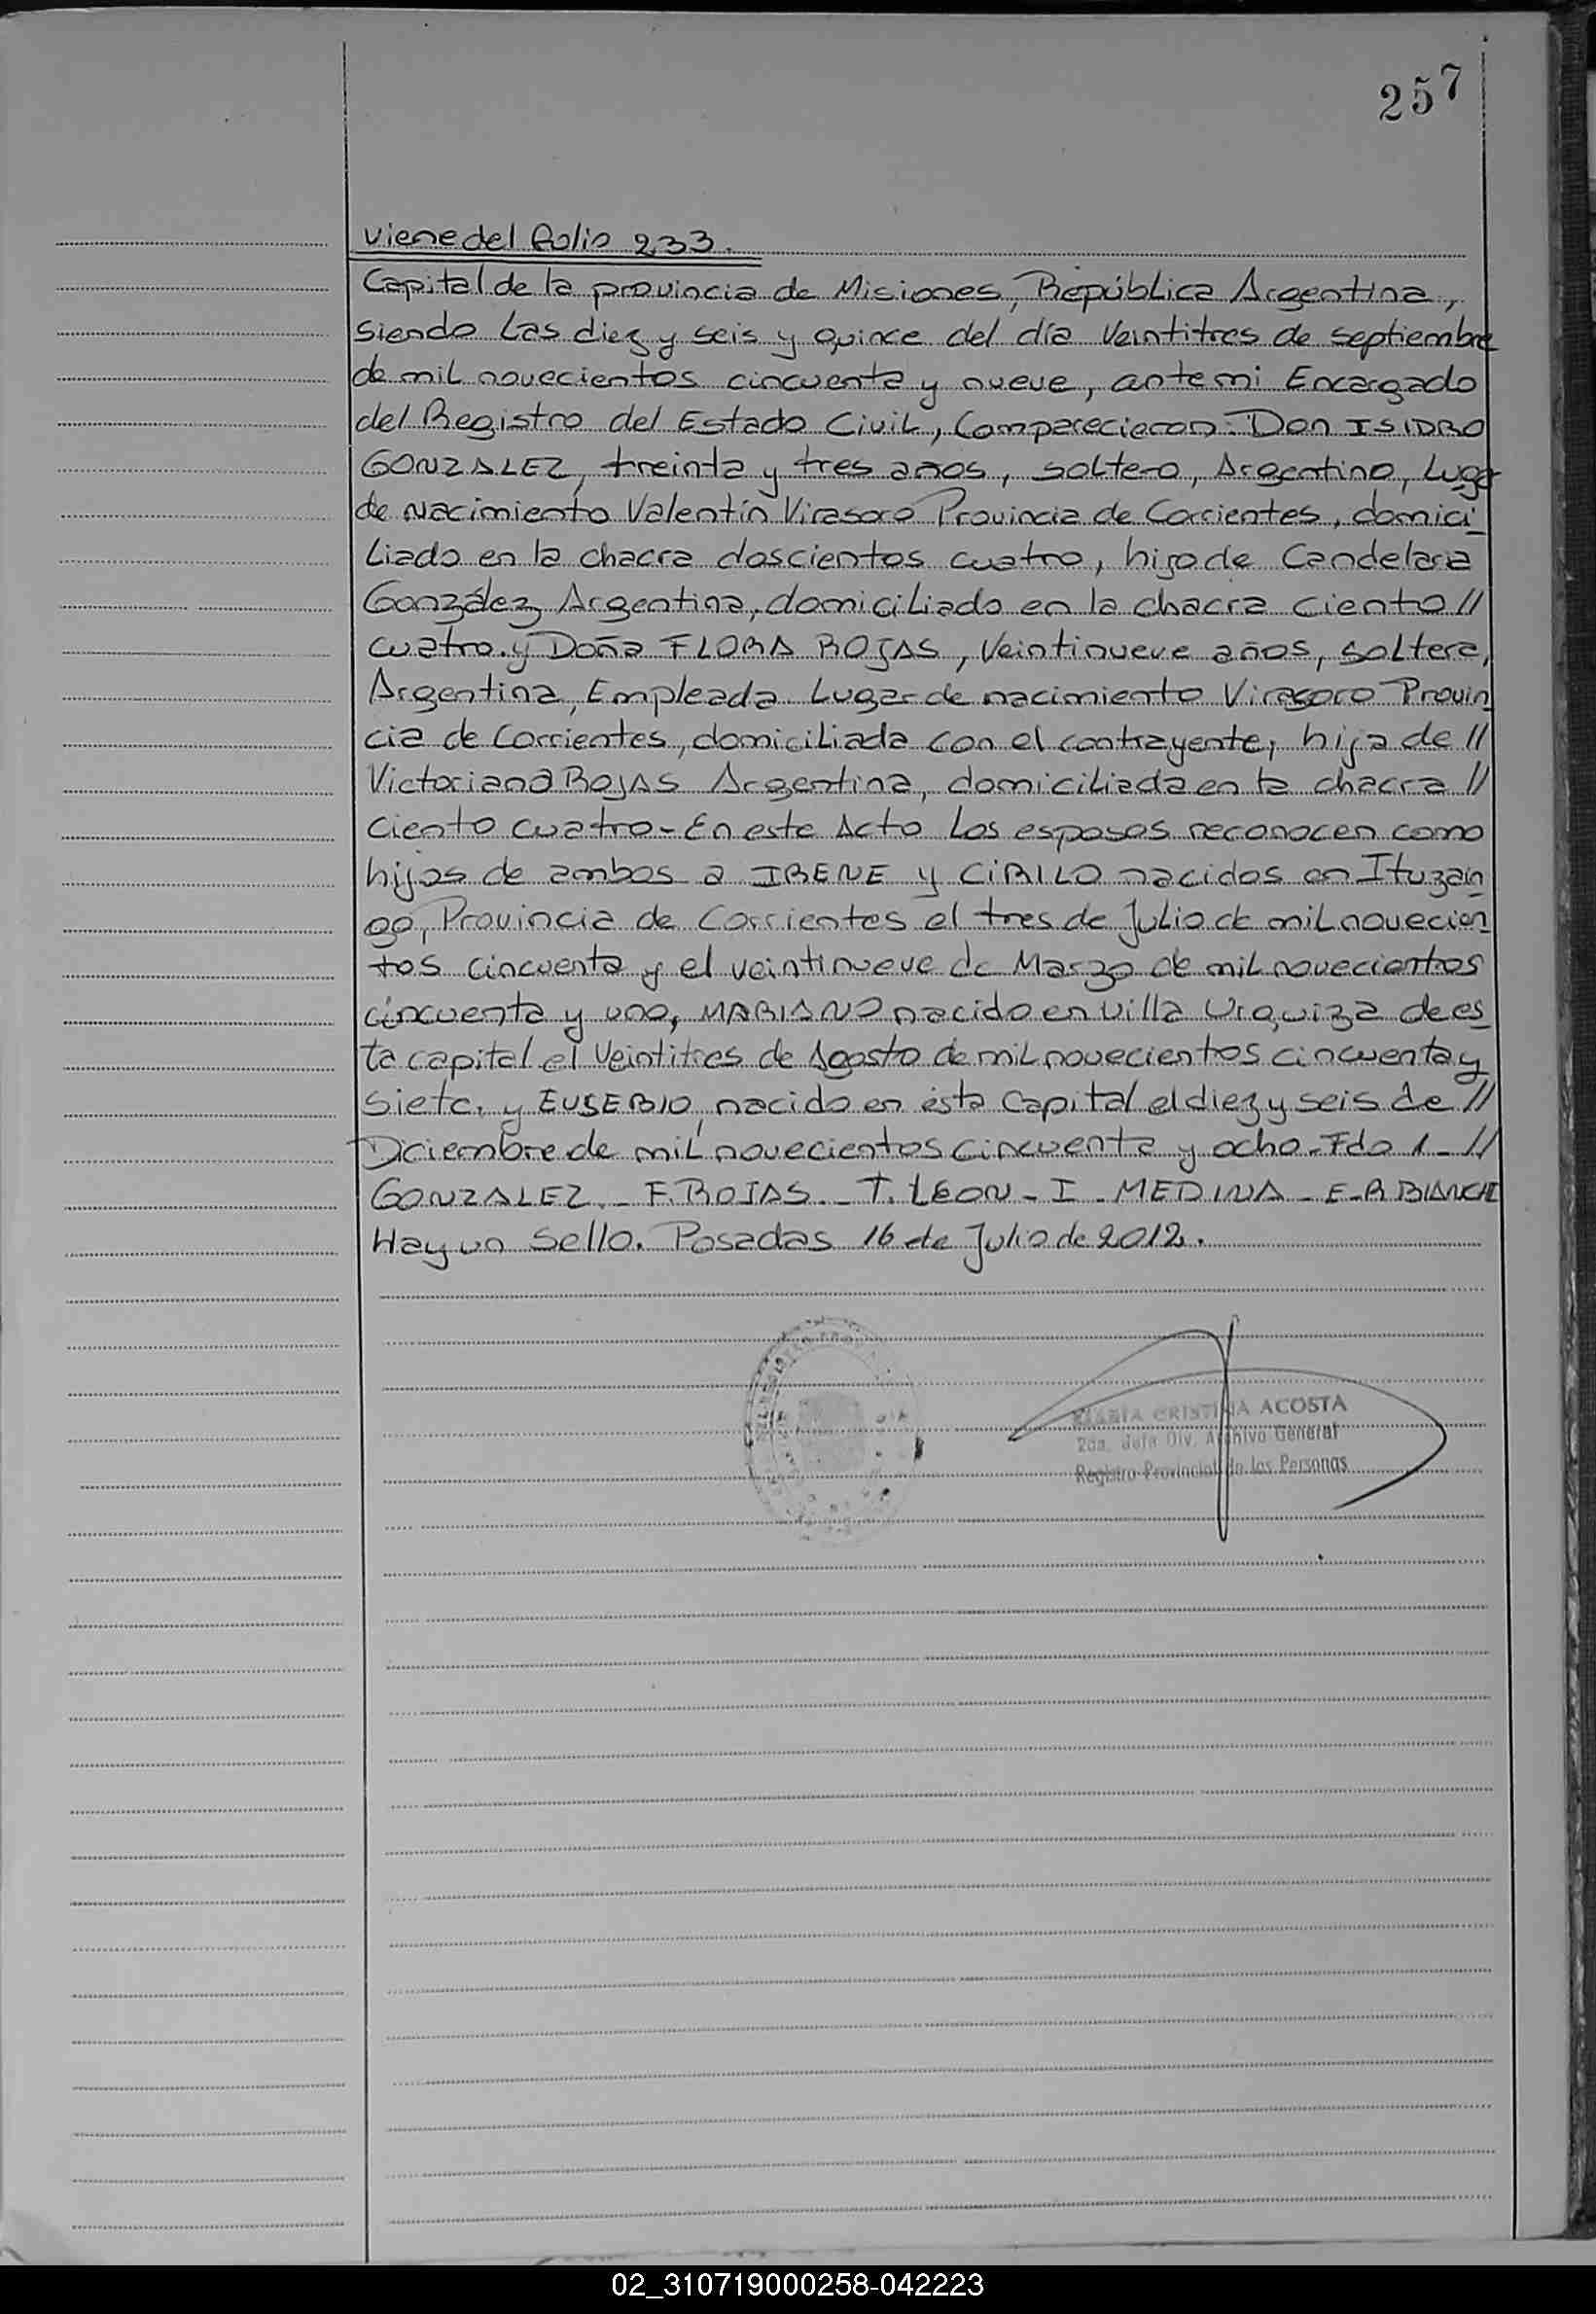 257
Viene del folio 233.
Capital de la provincia de Misiones, República Argentina,
siendo Las diez y seis y quince del día Veintitres de septiembre
de mil novecientos cincuenta y nueve, ante mi Encargado
del Registro del Estado Civil, Comparecieron: Don ISIDRO
GONZALEZ, treinta y tres años, soltero, Argentino, Lugar
de Nacimiento Valentín Virasoro Provincia de Corrientes, domici
Liado en la chacra doscientos cuatro, hijo de Candelaria
González, Argentina, domiciliado en la chacra ciento //
cuatro. y Doña FLORA ROJAS, Veintinueve años, soltera,
Argentina, Empleada Lugar de nacimiento Virasoro Provin
cia de Corrientes, domiciliada con el contrayente, hija de //
Victoriana ROJAS Argentina, domiciliada en la chacra //
Ciento cuatro - En este Acto Los esposos reconocen como
hijos de ambos a IRENE y CIRILO nacidos en Ituzain
go, Provincia de Corrientes el tres de Julio de mil novecien
tos cincuenta y el veintinueve de Marzo de mil novecientos
cincuenta y uno, MARIANO nacido en Villa Urquiza de es
ta capital el Veintitres de Agosto de mil novecientos cincuenta y
siete. y EUSEBIO, nacido en ésta Capital el diez y seis de //
Diciembre de mil novecientos cincuenta y ocho - Fdo 1 - //
GONZALEZ. - F. ROJAS. - T. LEON - I - MEDINA - E - R BIANCHI
Hay un Sello. Posadas 16 de Julio de 2012.
MARIA CRISTINA ACOSTA
2da. Jefa Div. Archivo General
Registro Provincial de las Personas
02_310719000258-042223